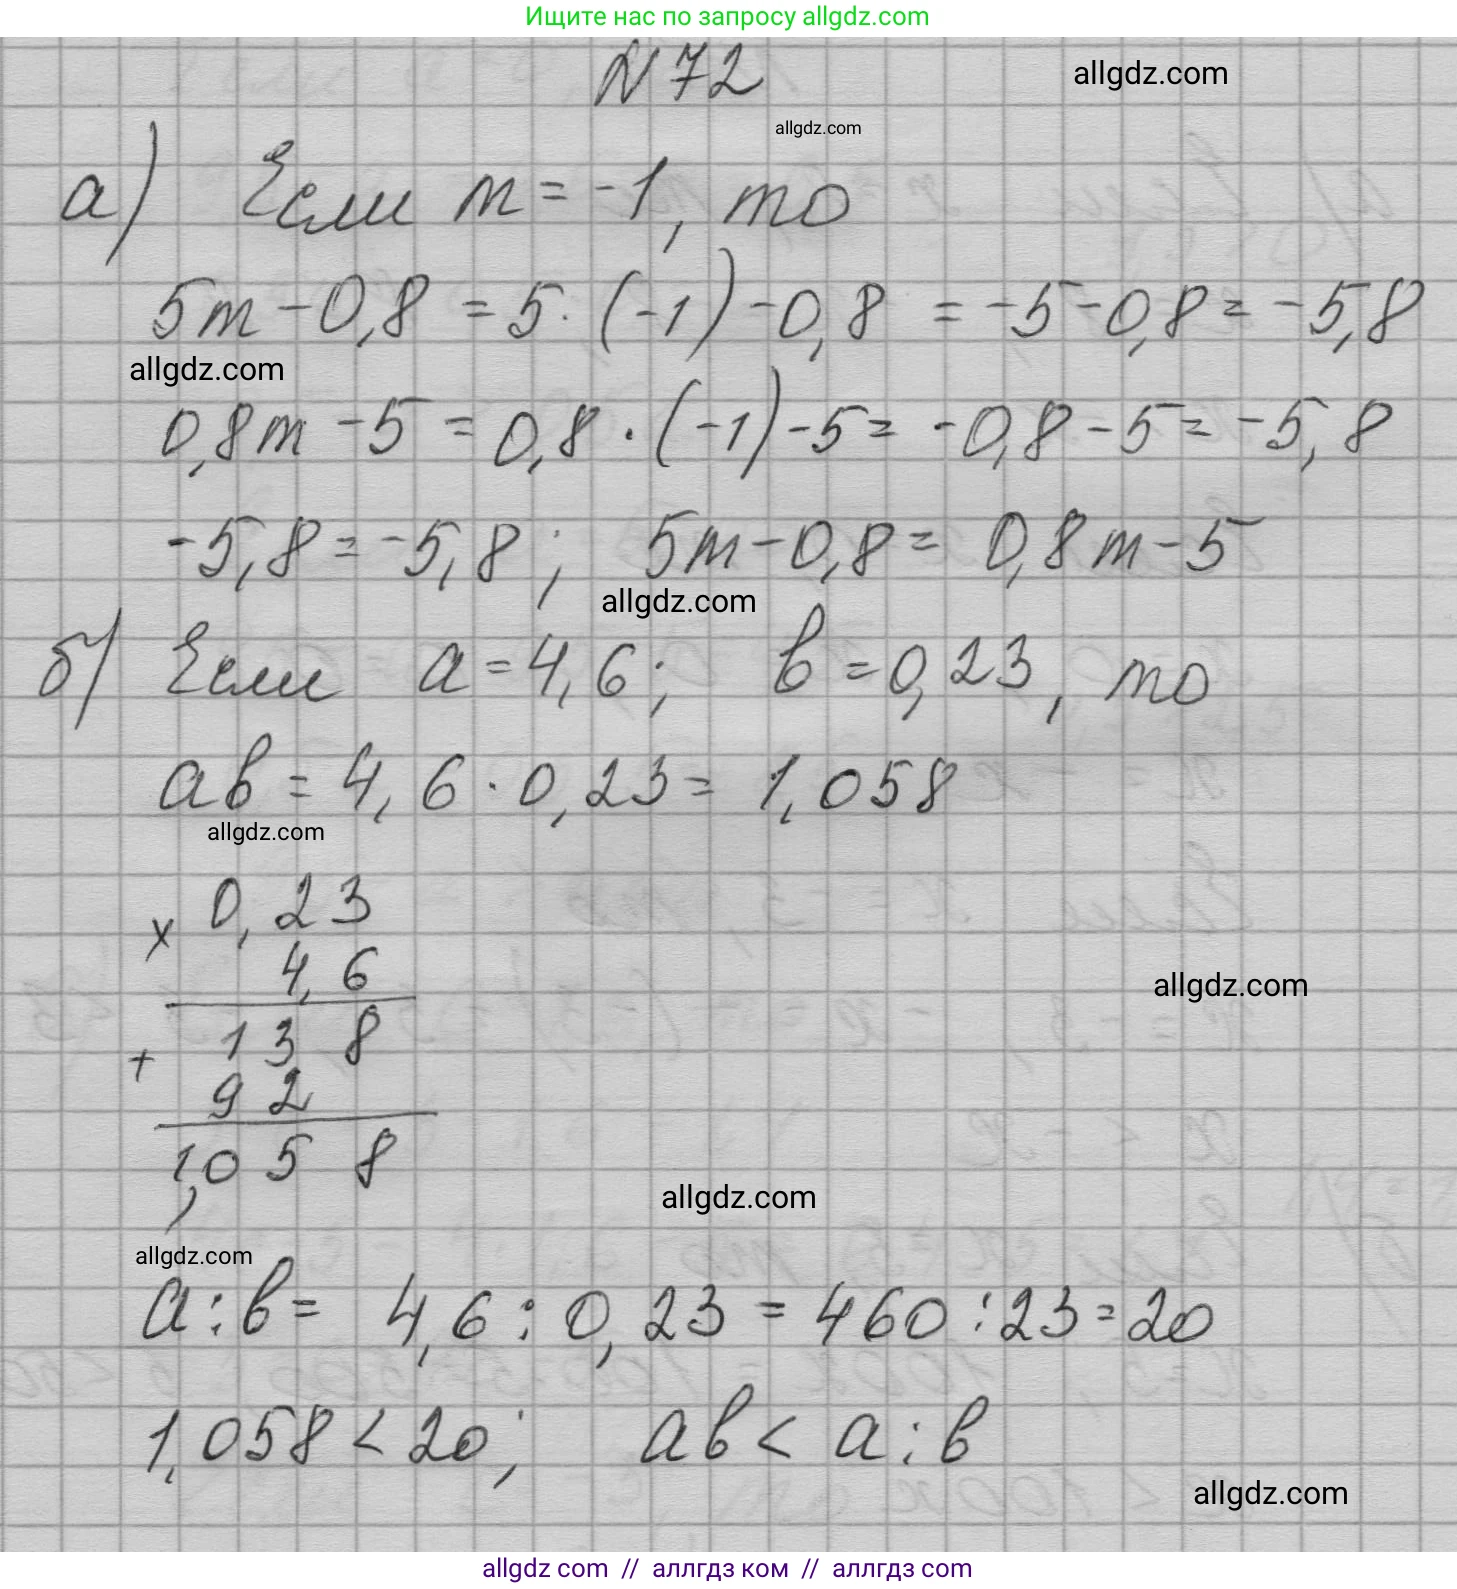 Ищите нас по запросу allgdz.com
N 72
allgdz.com
allgdz.com
а) Если m = -1, то
5m - 0,8 = 5 · (-1) - 0,8 = -5 - 0,8 = -5,8
allgdz.com
0,8m - 5 = 0,8 · (-1) - 5 = -0,8 - 5 = -5,8
-5,8 = -5,8 ; 5m - 0,8 = 0,8m - 5
allgdz.com
б) Если a = 4,6; b = 0,23, то
ab = 4,6 · 0,23 = 1,058
allgdz.com
x 0,23
4,6
allgdz.com
+ 138
92
1,058
allgdz.com
allgdz.com
a : b = 4,6 : 0,23 = 460 : 23 = 20
1,058 < 20; ab < a : b
allgdz.com
allgdz.com // аллгдз ком // allgdz.com